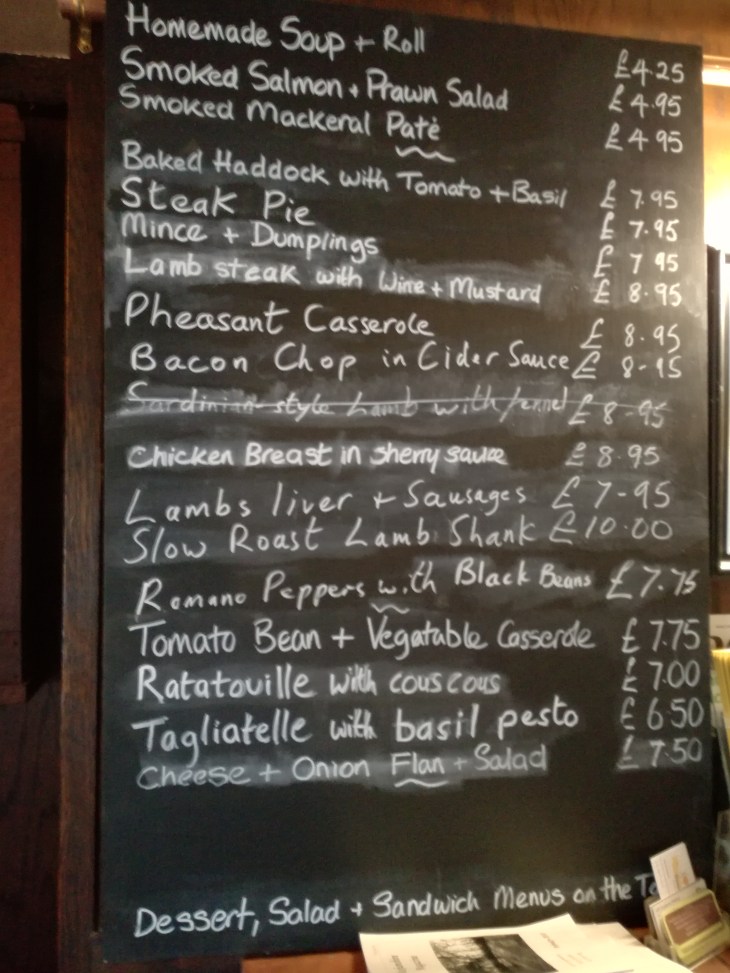 Homemade Soup + Roll £4.25
Smoked Salmon + Prawn Salad £4.95
Smoked Mackeral Patè £4.95
Baked Haddock with Tomato + Basil £7.95
Steak Pie £7.95
Mince + Dumplings £7 95
Lamb steak with Wine + Mustard £8.95
Pheasant Casserole £8.95
Bacon Chop in Cider Sauce £8-95
Sardinian-style Lamb with fennel £8-95
Chicken Breast in sherry sauce £8.95
Lambs liver + Sausages £7-95
Slow Roast Lamb Shank £10.00
Romano Peppers with Black Beans £7.75
Tomato Bean + Vegatable Casserole £7.75
Ratatouille with couscous £7.00
Tagliatelle with basil pesto £6.50
Cheese + Onion Flan + Salad £7.50
Dessert, Salad + Sandwich Menus on the